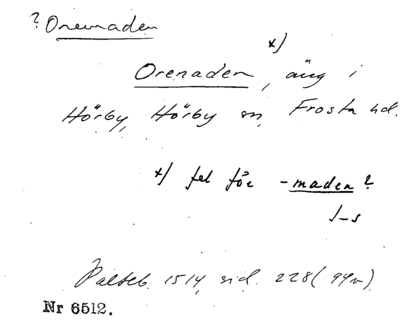 ? Oremaden
Orenaden, x) äng i
Hörby, Hörby sn, Frosta hd.
x) fel för -maden?
J-s
Palteb. 1514, sid. 228 (94v)
Nr 6512.